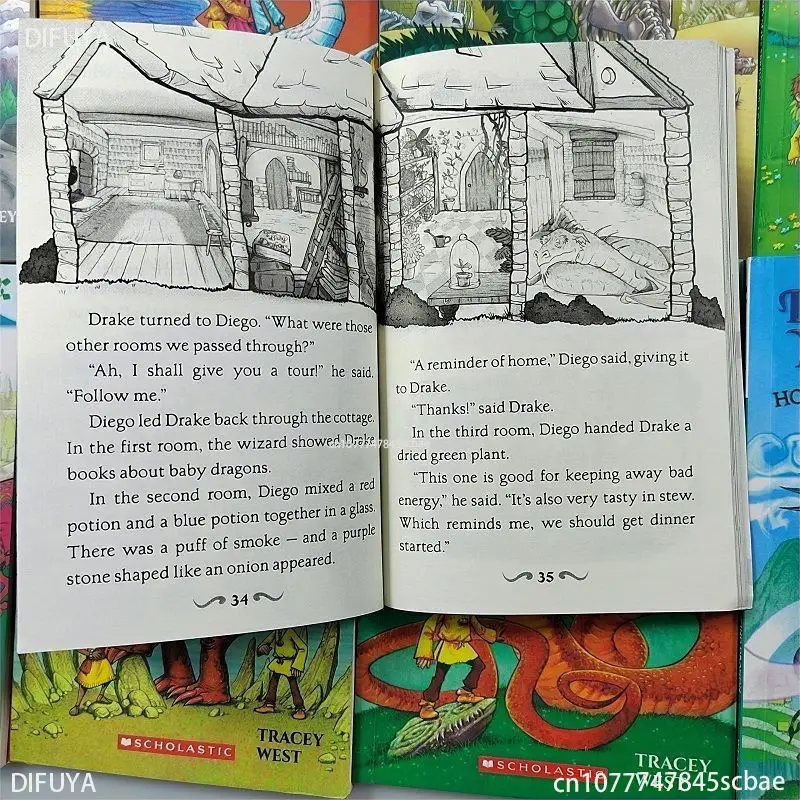 DIFUYA
EY
Drake turned to Diego. “What were those
other rooms we passed through?”
“Ah, I shall give you a tour!” he said.
“Follow me.”
Diego led Drake back through the cottage.
In the first room, the wizard showed Drake
books about baby dragons.
In the second room, Diego mixed a red
potion and a blue potion together in a glass.
There was a puff of smoke — and a purple
stone shaped like an onion appeared.
34
“A reminder of home,” Diego said, giving it
to Drake.
“Thanks!” said Drake.
In the third room, Diego handed Drake a
dried green plant.
“This one is good for keeping away bad
energy,” he said. “It’s also very tasty in stew.
Which reminds me, we should get dinner
started.”
35
HO
SCHOLASTIC
TRACEY
WEST
SCHOLASTIC
TRACEY
WEST
DIFUYA
cn1077747845scbae